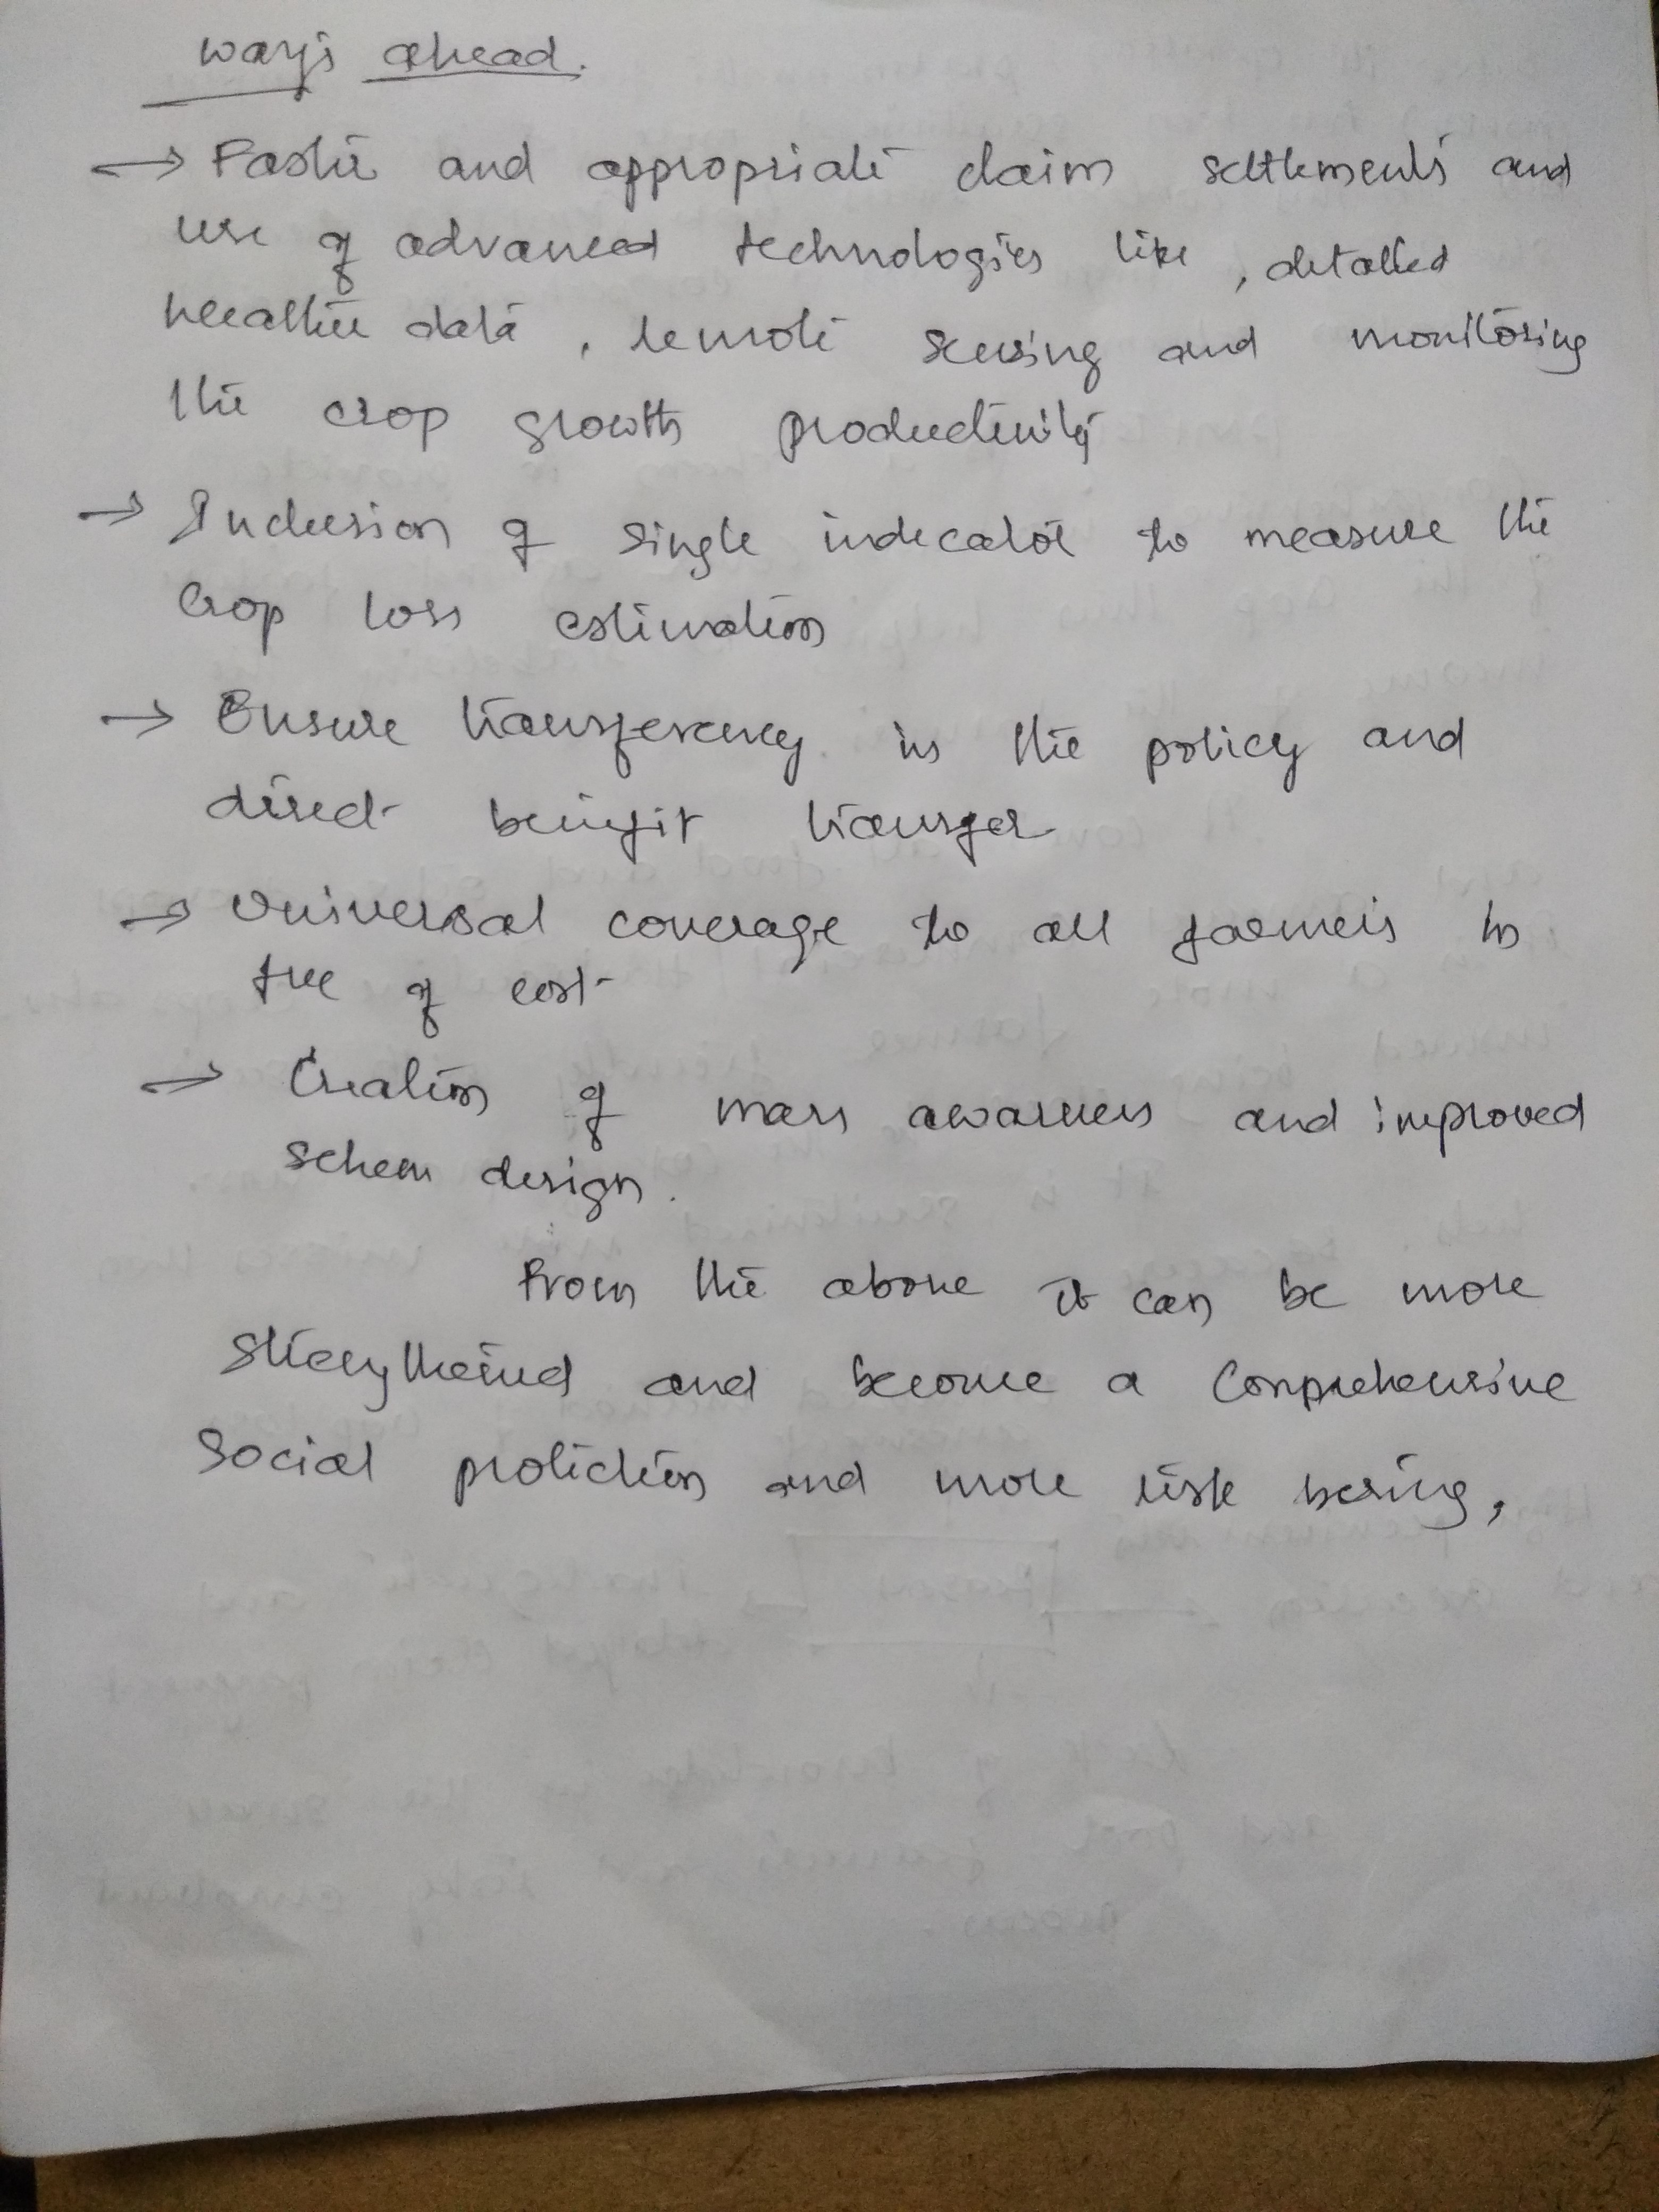 ways ahead.
→ Faster and appropriate claim settlements and
use of advanced technologies like, detailed
weather data, remote sensing and monitoring
the crop growth productivity
→ Inclusion of single indecator to measure the
crop loss estimation
→ Ensure transferency in the policy and
direct benifit transfer
→ Universal coverage to all farmers in
free of cost
→ Creation of mass awarness and improved
schem design.
From the above it can be more
and become a comprehensive
social protiction and more risk